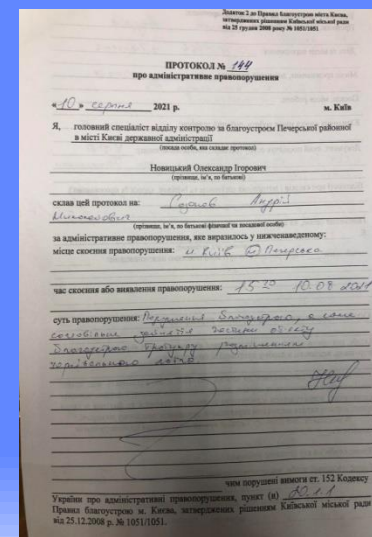 Додаток 2 до Правил благоустрою міста Києва,
затверджених рішенням Київської міської ради
від 25 грудня 2008 року № 1051/1051
ПРОТОКОЛ № 144
про адміністративне правопорушення
«10» серпня 2021 р. м. Київ
Я, головний спеціаліст відділу контролю за благоустроєм Печерської районної
в місті Києві державної адміністрації
(посада особи, яка складає протокол)
Новицький Олександр Ігорович
(прізвище, ім'я, по батькові)
склав цей протокол на: Андрій
Миколайович
(прізвище, ім'я, по батькові фізичної чи посадової особи)
за адміністративне правопорушення, яке виразилось у нижченаведеному:
місце скоєння правопорушення: м. Київ Печерська
час скоєння або виявлення правопорушення: 15 10 10.08 2021
суть правопорушення: Порушення благоустрою, а саме
самовільне зайняття частини об'єкту
благоустрою тротуару розміщенням
чим порушені вимоги ст. 152 Кодексу
України про адміністративні правопорушення, пункт (и) 20.1.1
Правил благоустрою м. Києва, затверджених рішенням Київської міської ради
від 25.12.2008 р. № 1051/1051.